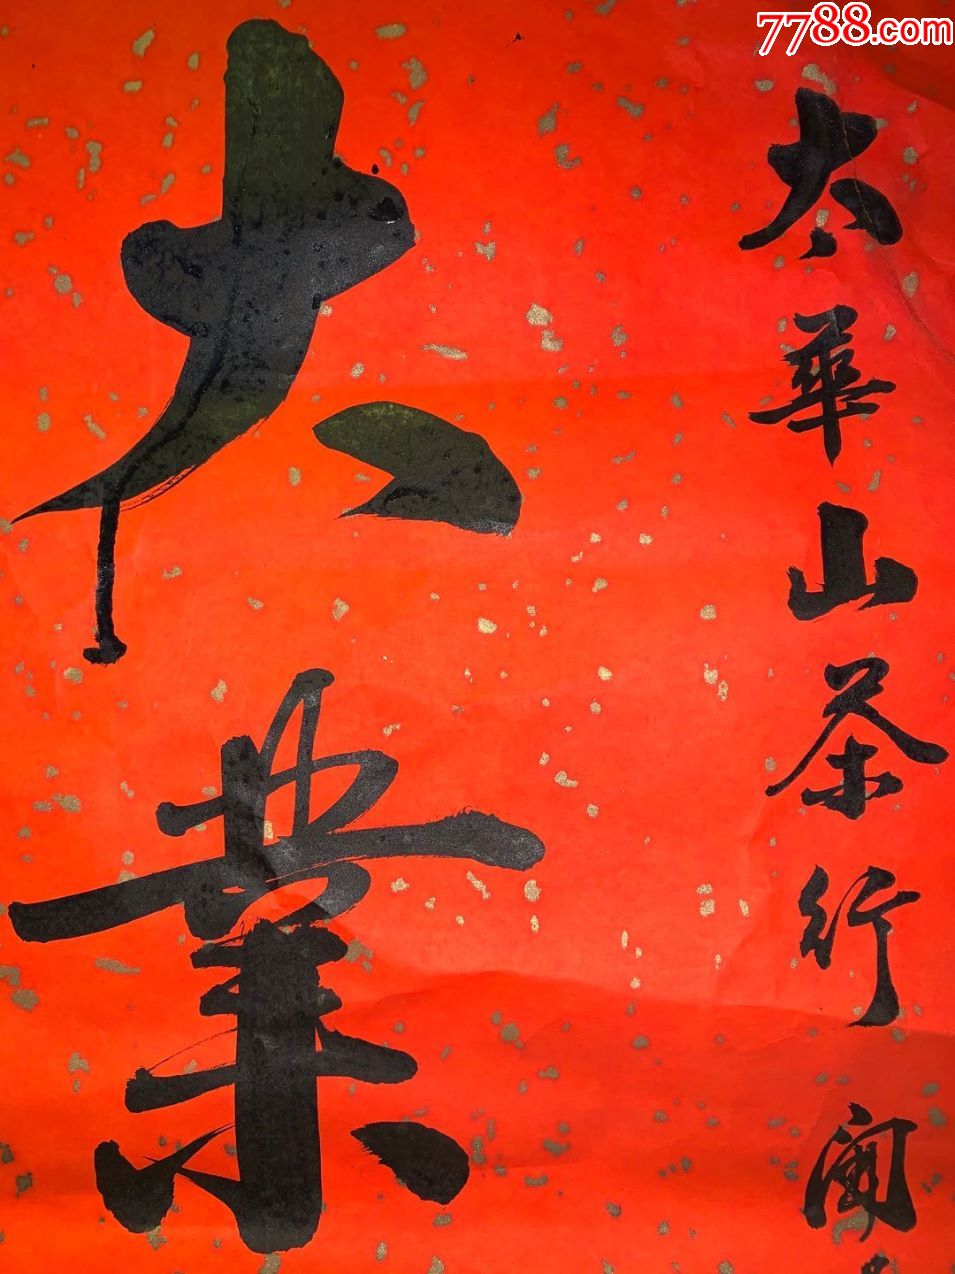 7788.com
太華山茶行
大業